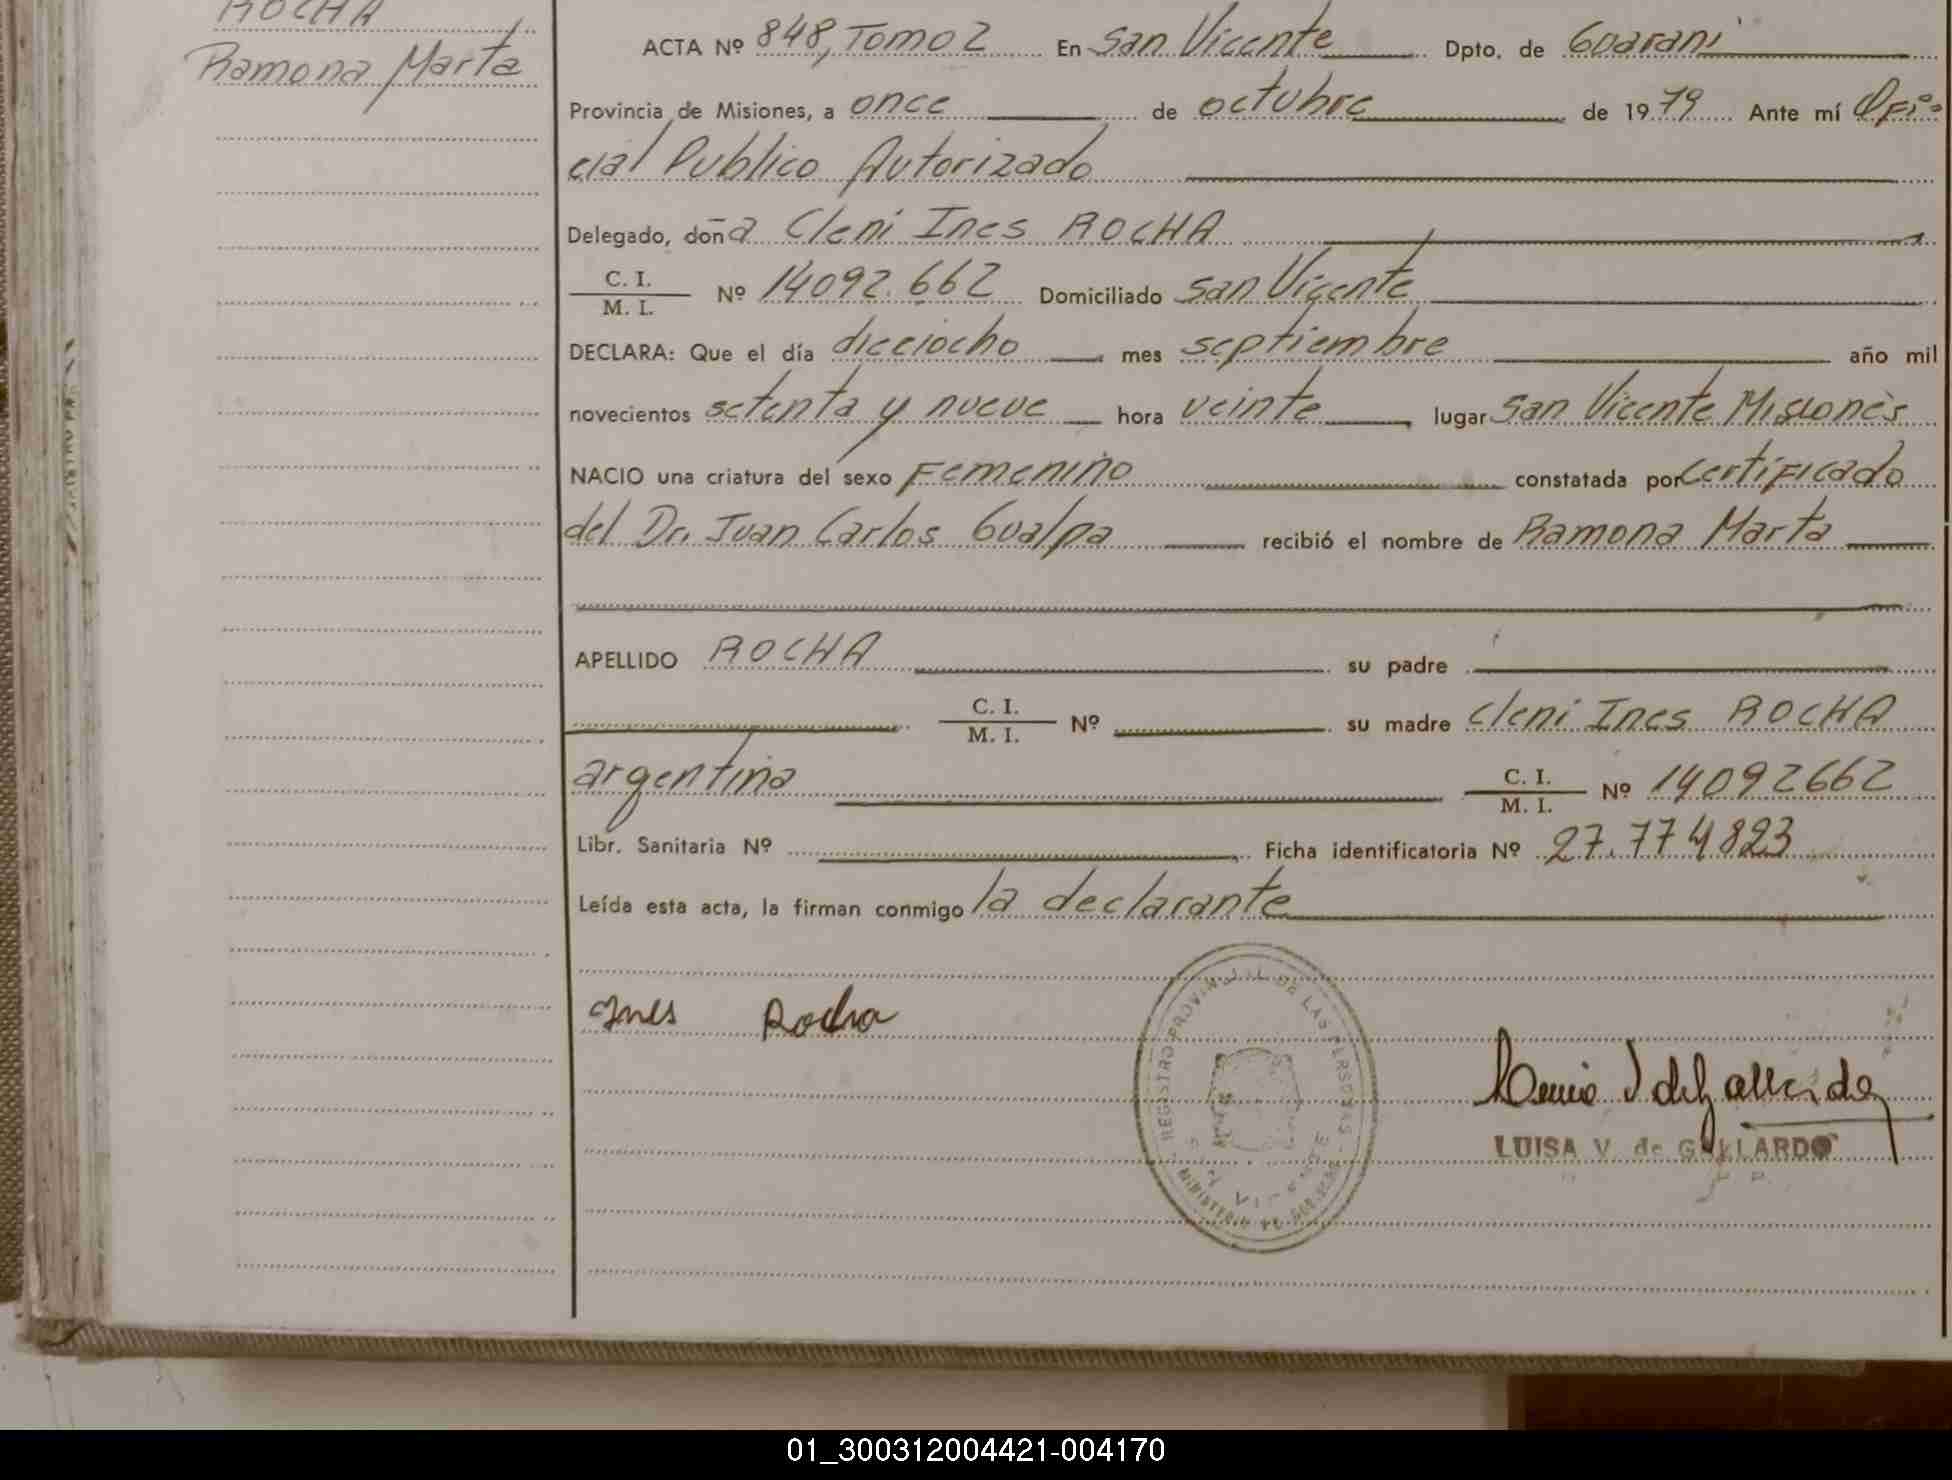 ROCHA
Ramona Marta
ACTA Nº 848, Tomo 2 En San Vicente Dpto. de Guarani
Provincia de Misiones, a once de octubre de 1979 Ante mí Ofi-
cial Publico Autorizado
Delegado, doña Cleni Ines ROCHA
C. I.
M. I. Nº 14092.662 Domiciliado San Vicente
DECLARA: Que el día dieciocho mes septiembre año mil
novecientos setenta y nueve hora veinte lugar San Vicente Misiones
NACIO una criatura del sexo Femenino constatada por certificado
del Dr. Juan Carlos Gualpa recibió el nombre de Ramona Marta
APELLIDO ROCHA su padre
C. I.
M. I. Nº su madre Cleni Ines ROCHA
argentina C. I.
M. I. Nº 14092662
Libr. Sanitaria Nº Ficha identificatoria Nº 27.774823
Leída esta acta, la firman conmigo la declarante
Ines Rocha
REGISTRO PROVINCIAL DE LAS PERSONAS
SAN VICENTE
MINISTERIO DE GOBIERNO
LUISA V. de GALLARDO
01_300312004421-004170